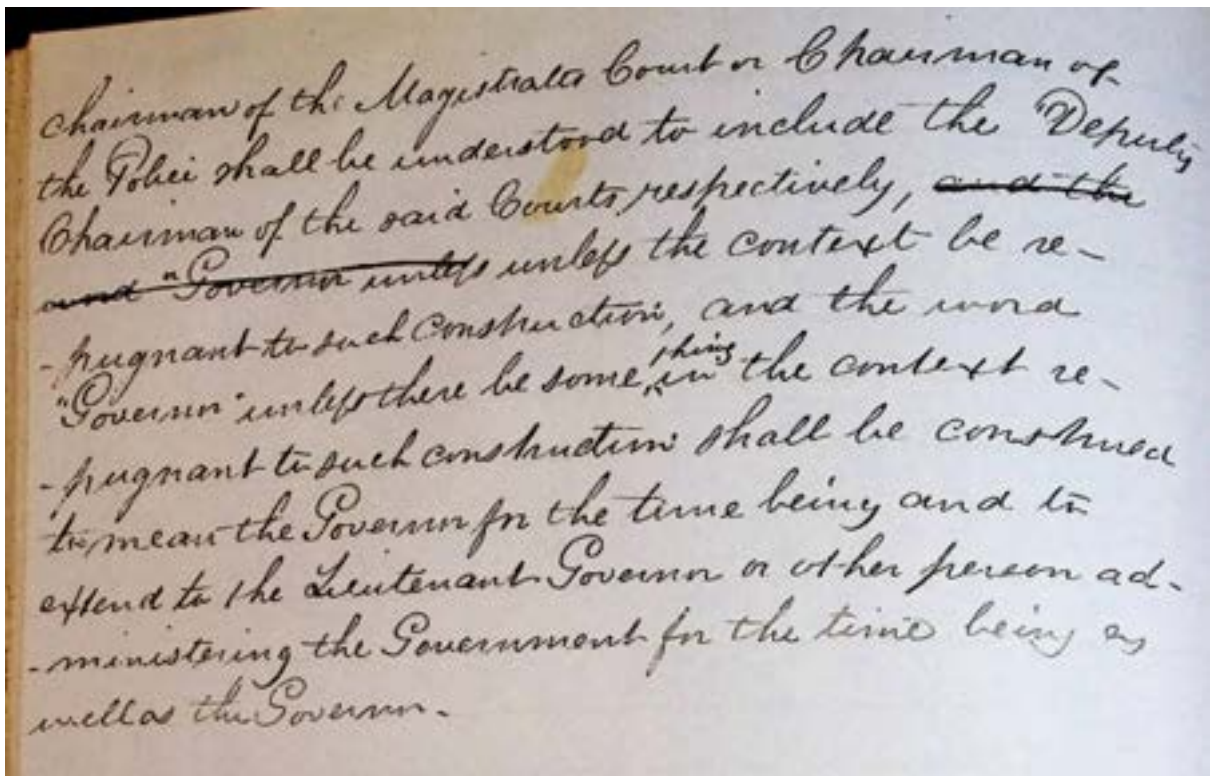 Chairman of the Magistrates Court or Chairman of
the Police shall be understood to include the Deputy
Chairman of the said Courts respectively, and the
and "Governor unless unless the context be re-
-pugnant to such construction, and the word
"Governor" unless there be something in the context re-
-pugnant to such construction shall be construed
to mean the Governor for the time being and to
extend to the Lieutenant Governor or other person ad-
-ministering the Government for the time being as
well as the Governor.